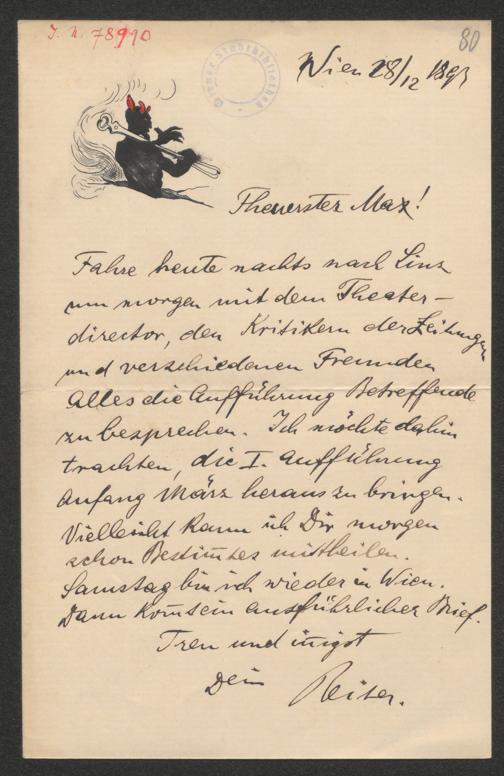 I. N. 78990
80
Wien 28/12 1893
Theuerster Max!
Fahre heute nachts nach Linz
um morgen mit dem Theater-
director, den Kritikern der Zeitungen
und verschiedenen Freunden
alles die Aufführung Betreffende
zu besprechen. Ich möchte dahin
trachten, die I. Aufführung
Anfang März heraus zu bringen.
Vielleicht kann ich Dir morgen
schon Bestim̄tes mittheilen.
Samstag bin ich wieder in Wien.
Dann kom̄t ein ausführlicher Brief.
Treu und in̄igst
Dein Reiter.